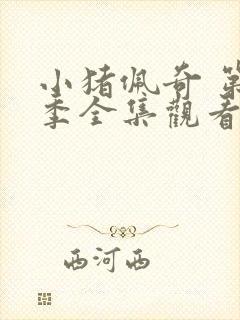 小猪佩奇 第
季全集觀看
西河西